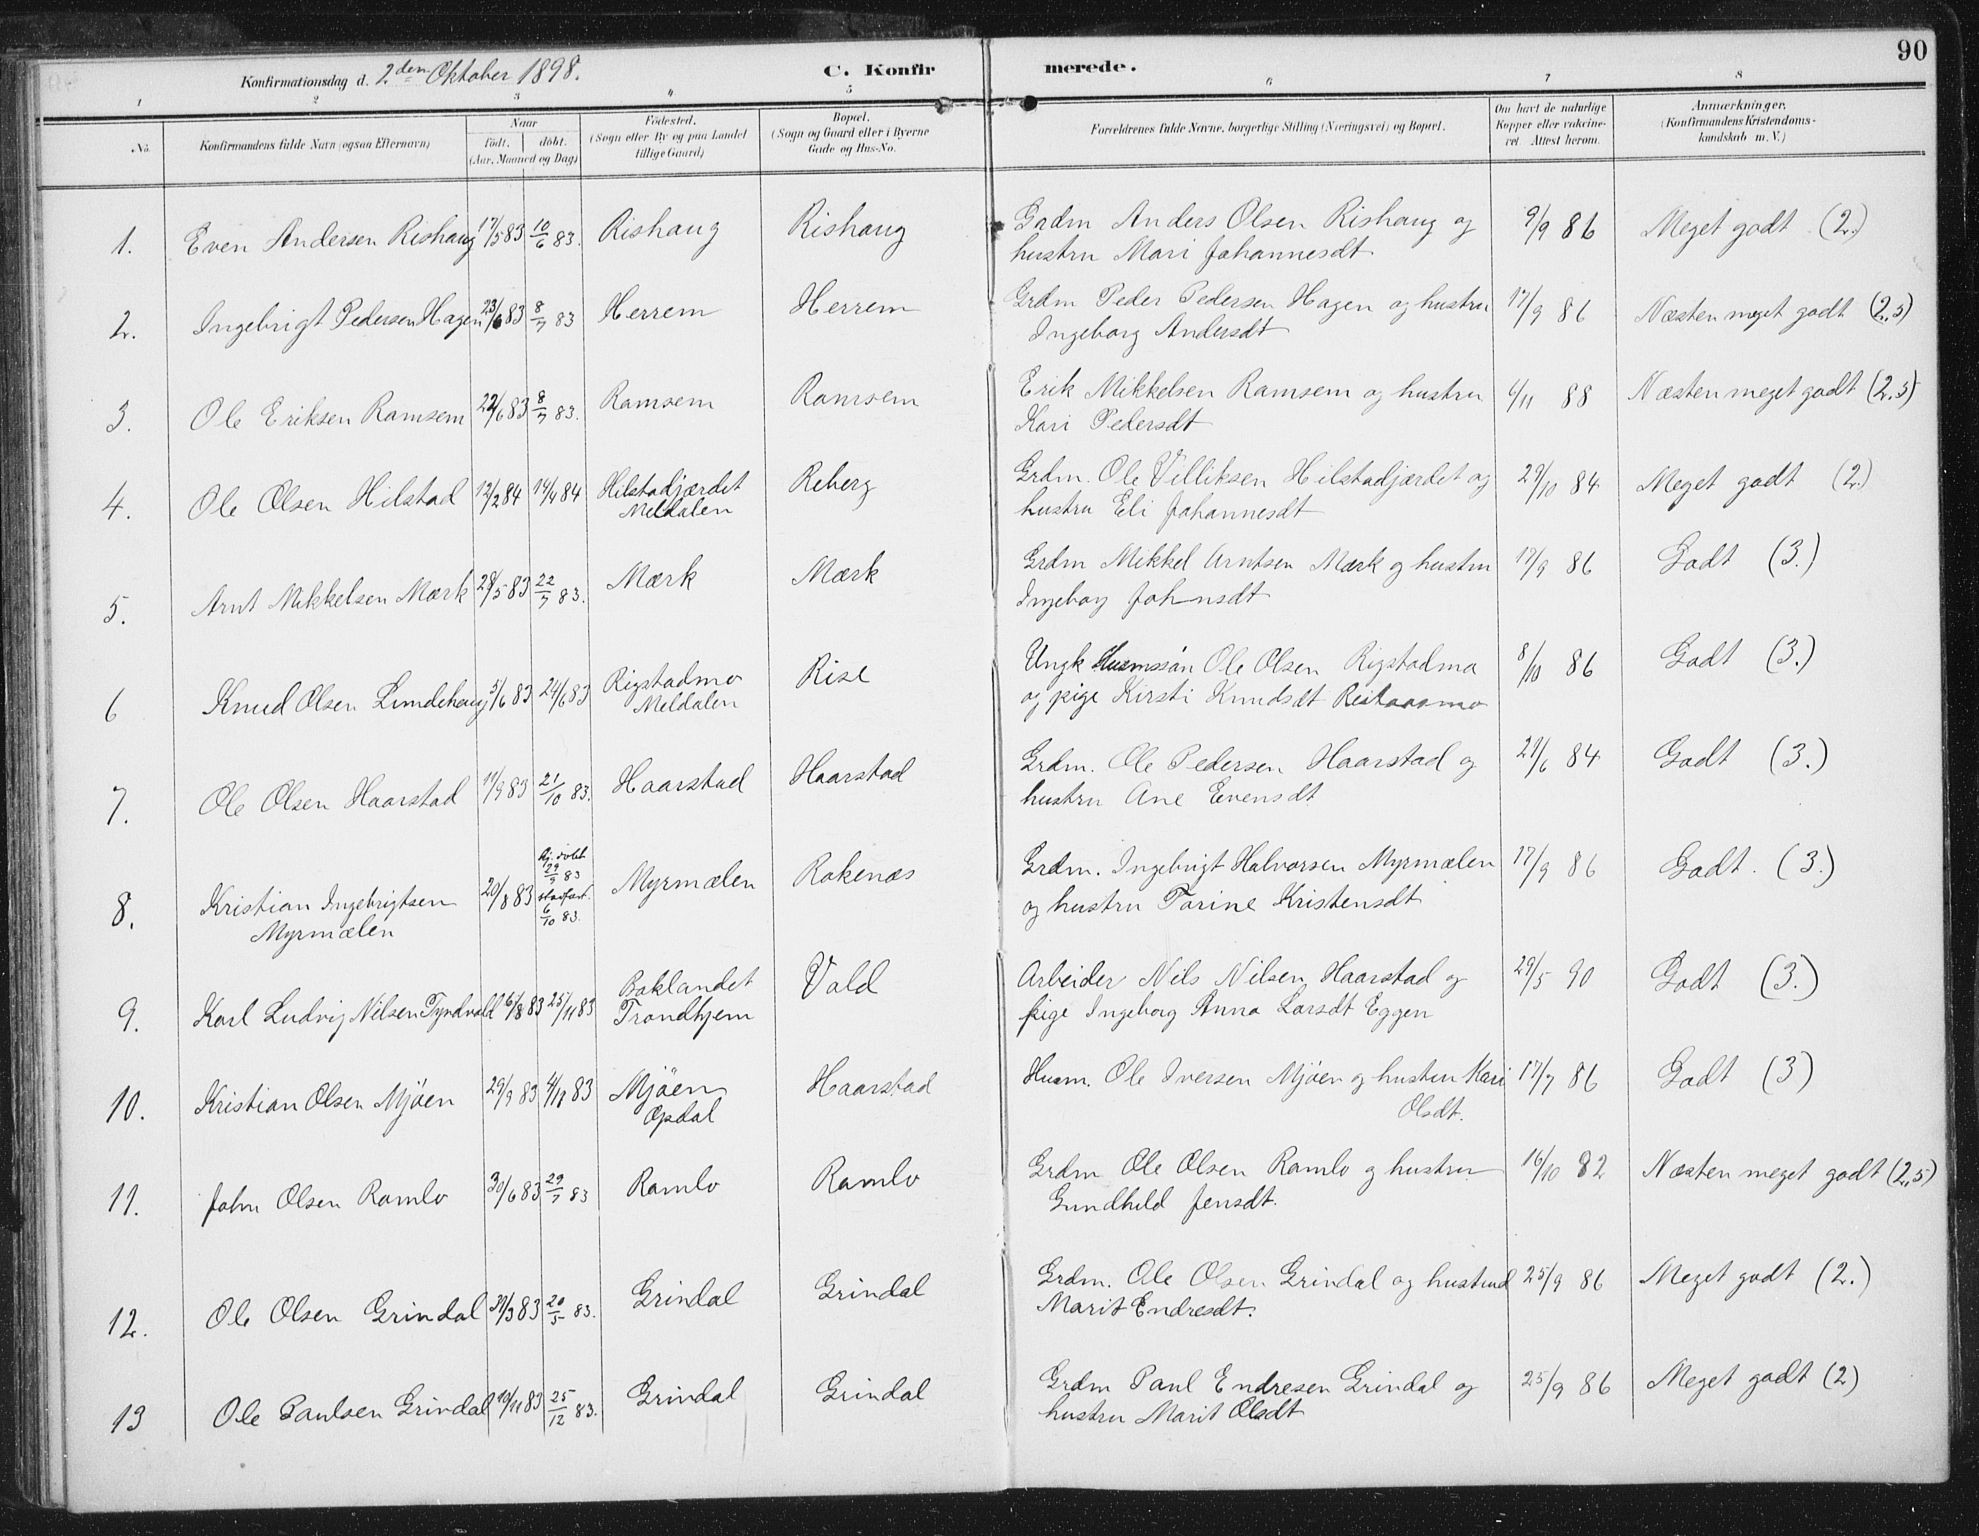 90
Konfirmationsdag d. 2den Oktober 1898. C. Konfirmerede.
1 2 3 4 5 6 7 8
No. Konfirmandens fulde Navn (ogsaa Efternavn) Naar født. døbt. (Aar, Maaned og Dag) Fødested. (Sogn eller By og paa Landet tillige Gaard) Bopæl. (Sogn og Gaard eller i Byerne Gade og Hus-No. Forældrenes fulde Navne, borgerlige Stilling (Næringsvei) og Bopæl. Om havt de naturlige Kopper eller vakcinevet. Attest herom. Anmærkninger. (Konfirmandens Kristendomskundskab m. V.)
1. Even Andersen Rishaug 17/5 83 10/6 83. Rishaug Rishaug Grdm Anders Olsen Rishaug og 9/9 86 Meget godt (2.)
hustru Mari Johannesdt.
2. Ingebrigt Pedersen Hagen 23/6 83 8/7 83 Herrem Herrem Grdm Peder Pedersen Hagen og hustru 17/9 86 Næsten meget godt (2.5)
Ingeborg Andersdt
3. Ole Eriksen Ramsem 22/6 83 8/7 83. Ramsem Ramsem Erik Mikkelsen Ramsem og hustru 6/11 88 Næsten meget godt (2.5)
Kari Pedersdt
4. Ole Olsen Hilstad 12/2 84 14/4 84 Hilstadjærdet Reberg Grdm. Ole Villiksen Hilstadjærdet og 29/10 84 Meget godt (2.)
Meldalen hustru Eli Johannesdt
5. Arnt Mikkelsen Mærk 28/5 83 22/7 83. Mærk Mærk Grdm Mikkel Arntsen Mærk og hustru 17/9 86 Godt (3.)
Ingeborg Johnsdt
6 Knud Olsen Lundehaug 5/6 83 24/6 83 Rigstadmo Rise Ungk Husmssøn Ole Olsen Rigstadmo 8/10 86 Godt (3.)
Meldalen og pige Kirsti Knudsdt
7. Ole Olsen Haarstad 17/9 83 21/10 83. Haarstad Haarstad Grdm. Ole Pedersen Haarstad og 29/6 84 Godt (3.)
hustru Ane Evensdt
8. Kristian Ingebrigtsen 20/8 83 Hj. døbt 29/9 83 stadfæst. 6/10 83. Myrmælen Rokenæs Grdm. Ingebrigt Halvorsen Myrmælen 17/9 86 Godt. (3.)
Myrmælen og hustru Torine Kristensdt
9. Karl Ludvig Nilsen Tyndvold 6/8 83 25/11 83 Baklandet Vold Arbeider Nils Nilsen Haarstad og 29/5 90 Godt (3.)
Trondhjem pige Ingeborg Anna Larsdt Eggen
10. Kristian Olsen Mjøen 29/9 83 4/11 83 Mjøen Haarstad Husm. Ole Iversen Mjøen og hustru Kari 17/7 86 Godt (3)
Opdal Olsdt.
11. John Olsen Ramlo 30/6 83 29/7 83 Ramlo Ramlo Grdm Ole Olsen Ramlo og hustru 16/10 82 Næsten meget godt (2,5)
Gundhild Jensdt.
12. Ole Olsen Grindal 30/3 83 20/5 83. Grindal Grindal Grdm. Ole Olsen Grindal og hustru 25/9 86 Meget godt (2.)
Marit Endresdt.
13 Ole Paulsen Grindal 19/11 83 25/12 83. Grindal Grindal Grdm Paul Endresen Grindal og 25/9 86 Meget godt (2)
hustru Marit Olsdt